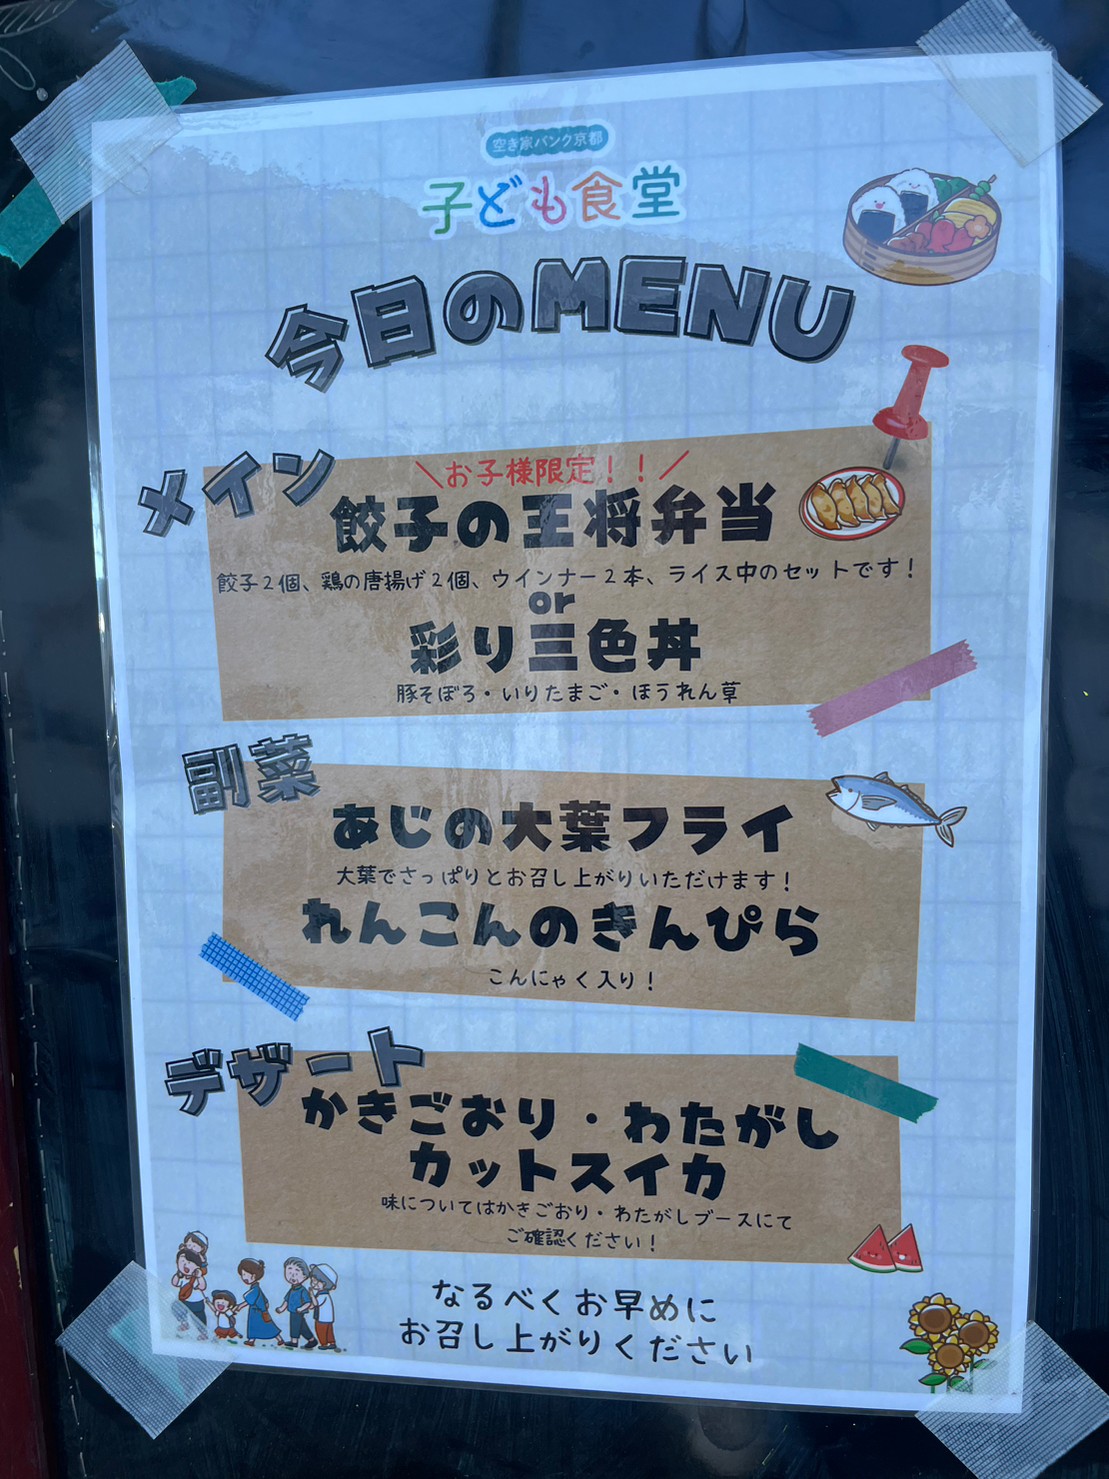 空き家バンク京都
子ども食堂
今日のMENU
メイン
＼お子様限定！！／
餃子の王将弁当
餃子２個、鶏の唐揚げ２個、ウインナー２本、ライス中のセットです！
or
彩り三色丼
豚そぼろ・いりたまご・ほうれん草
副菜
あじの大葉フライ
大葉でさっぱりとお召し上がりいただけます！
れんこんのきんぴら
こんにゃく入り！
デザート
かきごおり・わたがし
カットスイカ
味についてはかきごおり・わたがしブースにて
ご確認ください！
なるべくお早めに
お召し上がりください